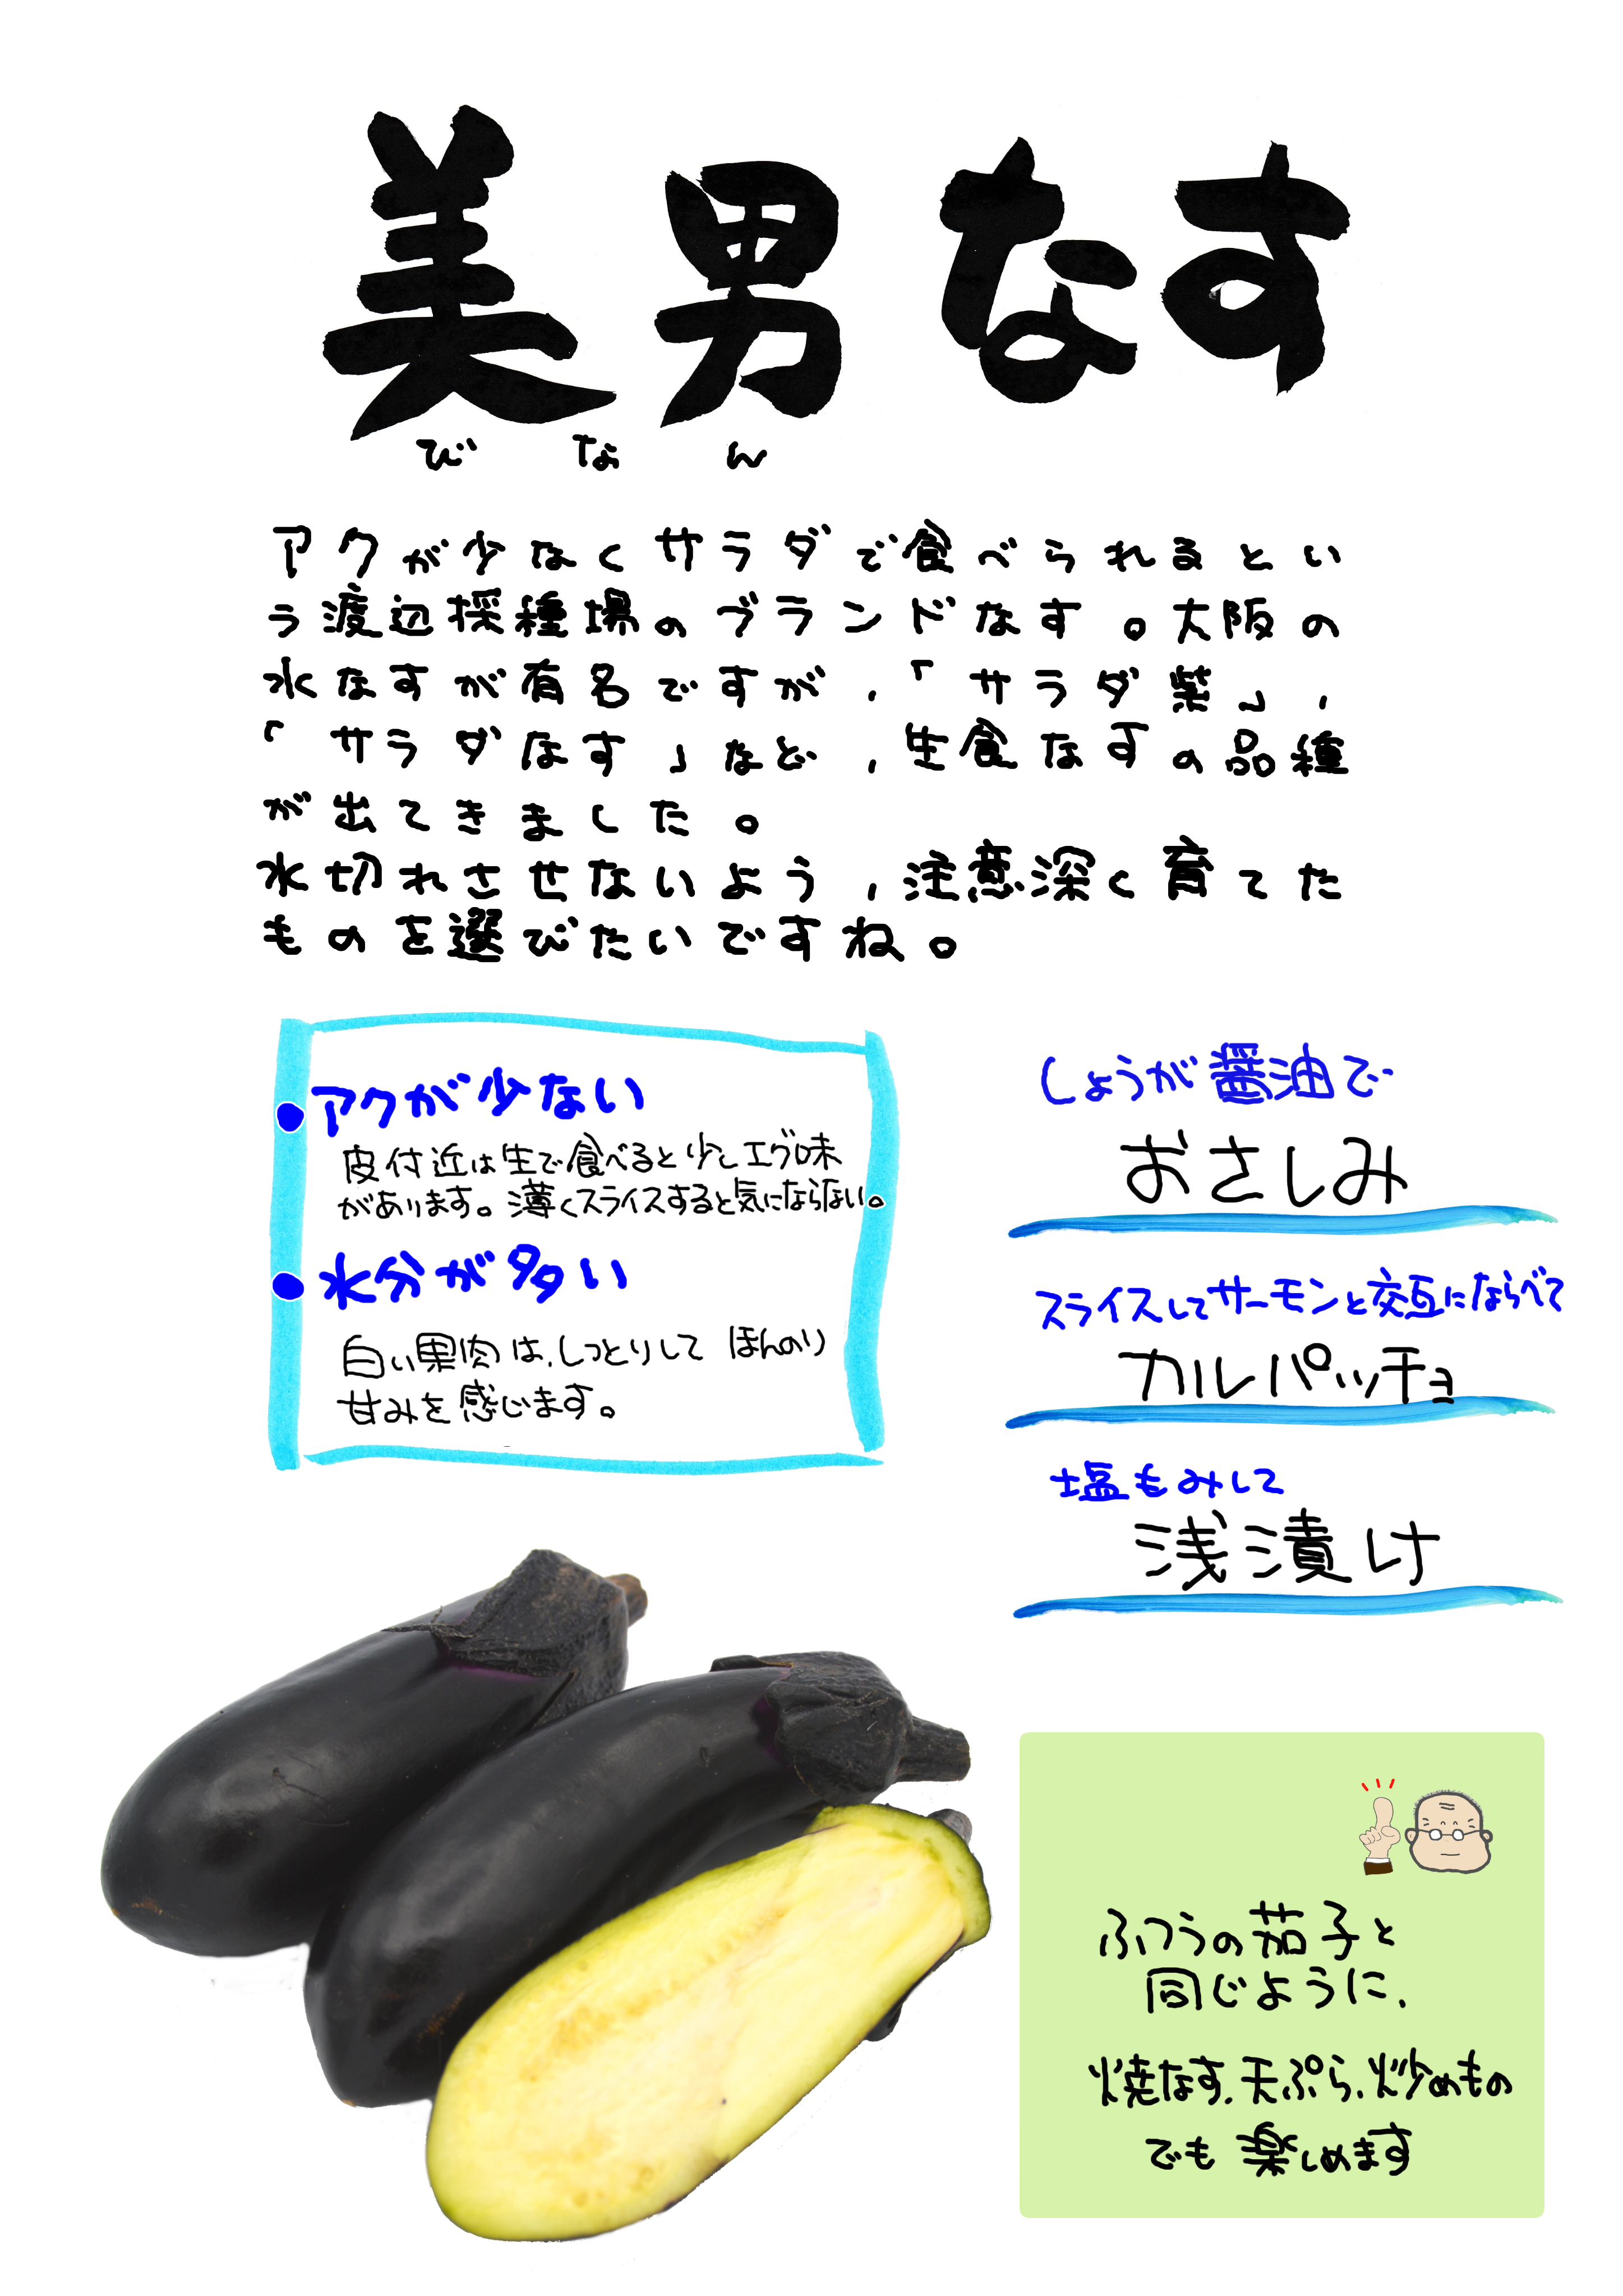 美男なす
びなん
アクが少なくサラダで食べられるとい
う渡辺採種場のブランドなす。大阪の
水なすが有名ですが，「サラダ紫」，
「サラダなす」など，生食なすの品種
が出てきました。
水切れさせないよう，注意深く育てた
ものを選びたいですね。
アクが少ない
皮付近は生で食べると少しエグ味
があります。薄くスライスすると気にならない。
水分が多い
白い果肉は、しっとりして ほんのり
甘みを感じます。
しょうが醤油で
おさしみ
スライスしてサーモンと交互にならべて
カルパッチョ
塩もみして
浅漬け
ふつうの茄子と
同じように、
焼なす、天ぷら、炒めもの
でも 楽しめます